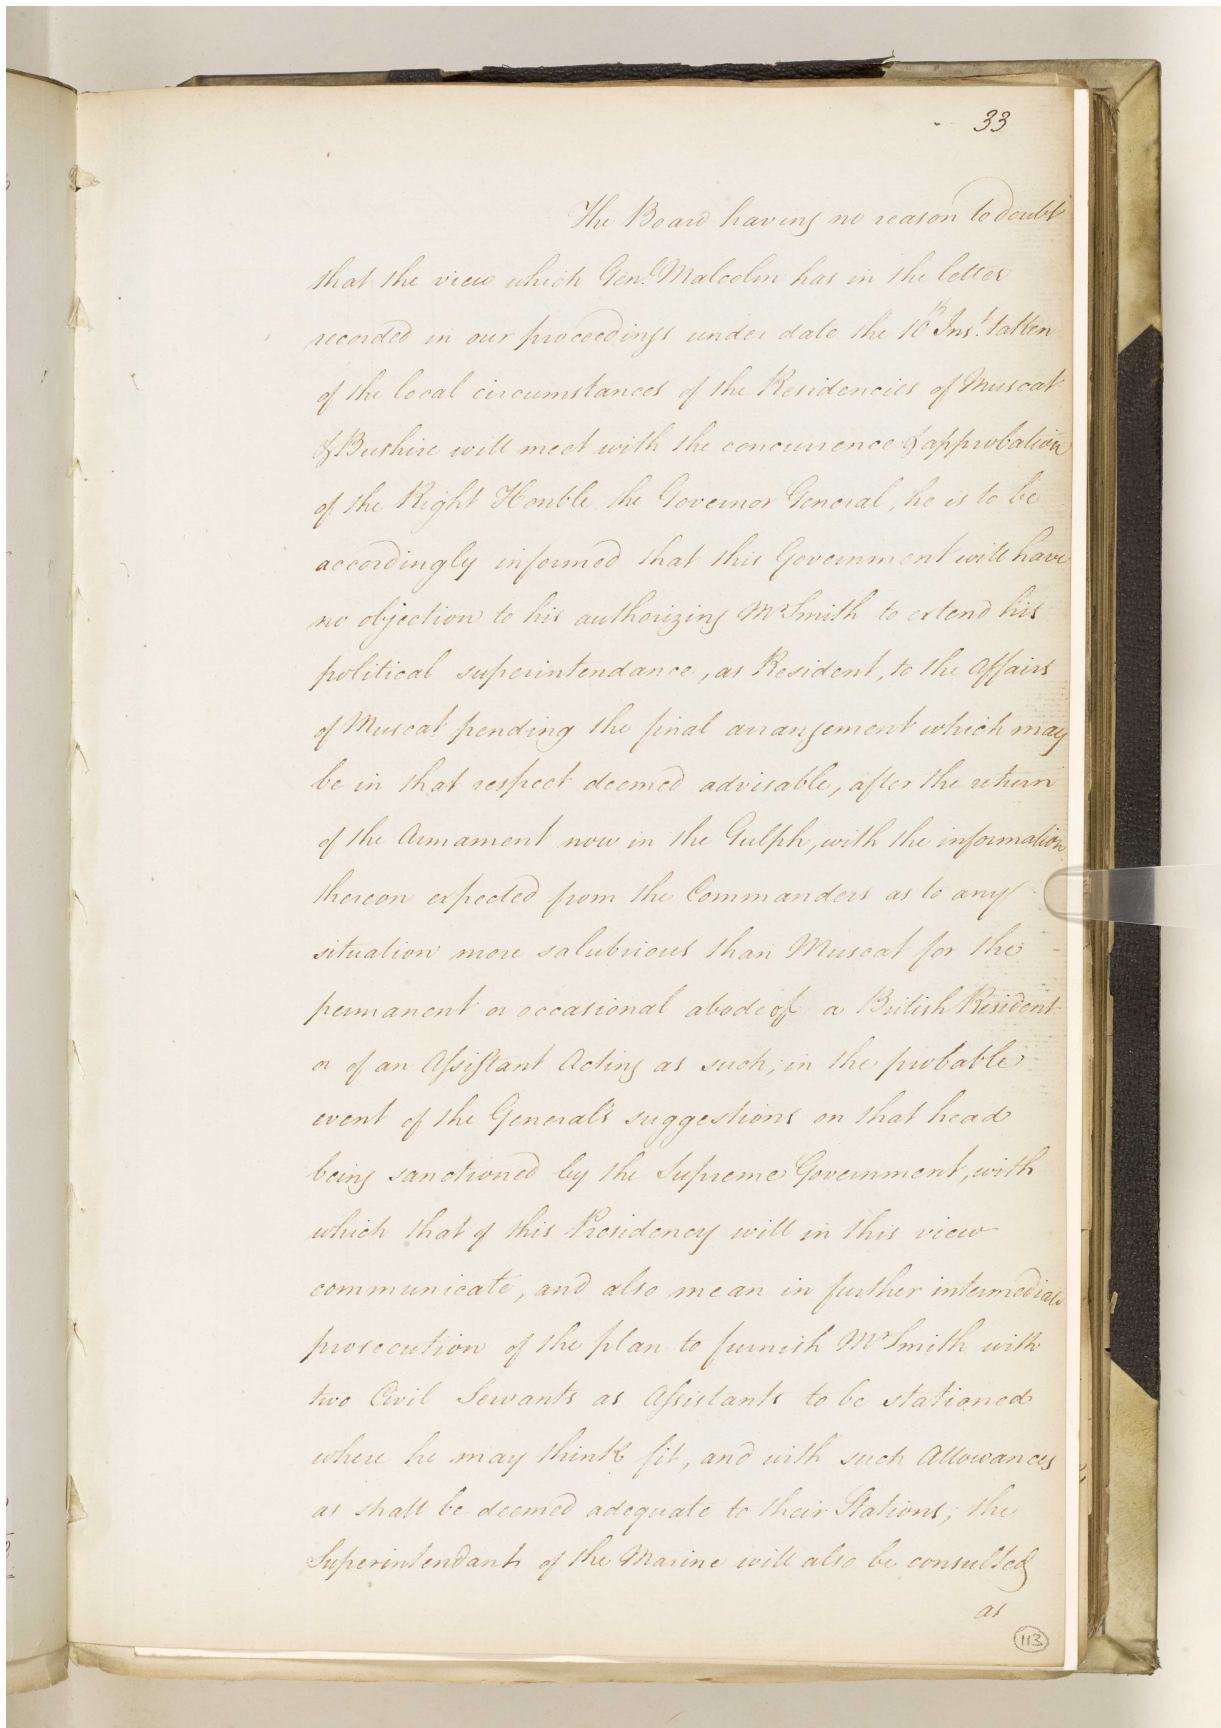 33
The Board having no reason to doubt
that the view which Genl. Malcolm has in the letter
recorded in our proceedings under date the 10th Inst. taken
of the local circumstances of the Residencies of Muscat
& Bushire will meet with the concurrence & approbation
of the Right Honble. the Governor General, he is to be
accordingly informed that this Government will have
no objection to his authorizing Mr Smith to extend his
political superintendance, as Resident, to the Affairs
of Muscat pending the final arrangement which may
be in that respect deemed advisable, after the return
of the Armament now in the Gulph, with the information
thereon expected from the Commanders as to any
situation more salubrious than Muscat for the
permanent or occasional abode of a British Resident
or of an Assistant Acting as such, in the probable
event of the General's suggestions on that head
being sanctioned by the Supreme Government, with
which that of this Presidency will in this view
communicate, and also mean in further intermediate
prosecution of the plan to furnish Mr Smith with
two Civil Servants as Assistants to be stationed
where he may think fit, and with such Allowances
as shall be deemed adequate to their Stations; the
Superintendant of the Marine will also be consulted
as
113